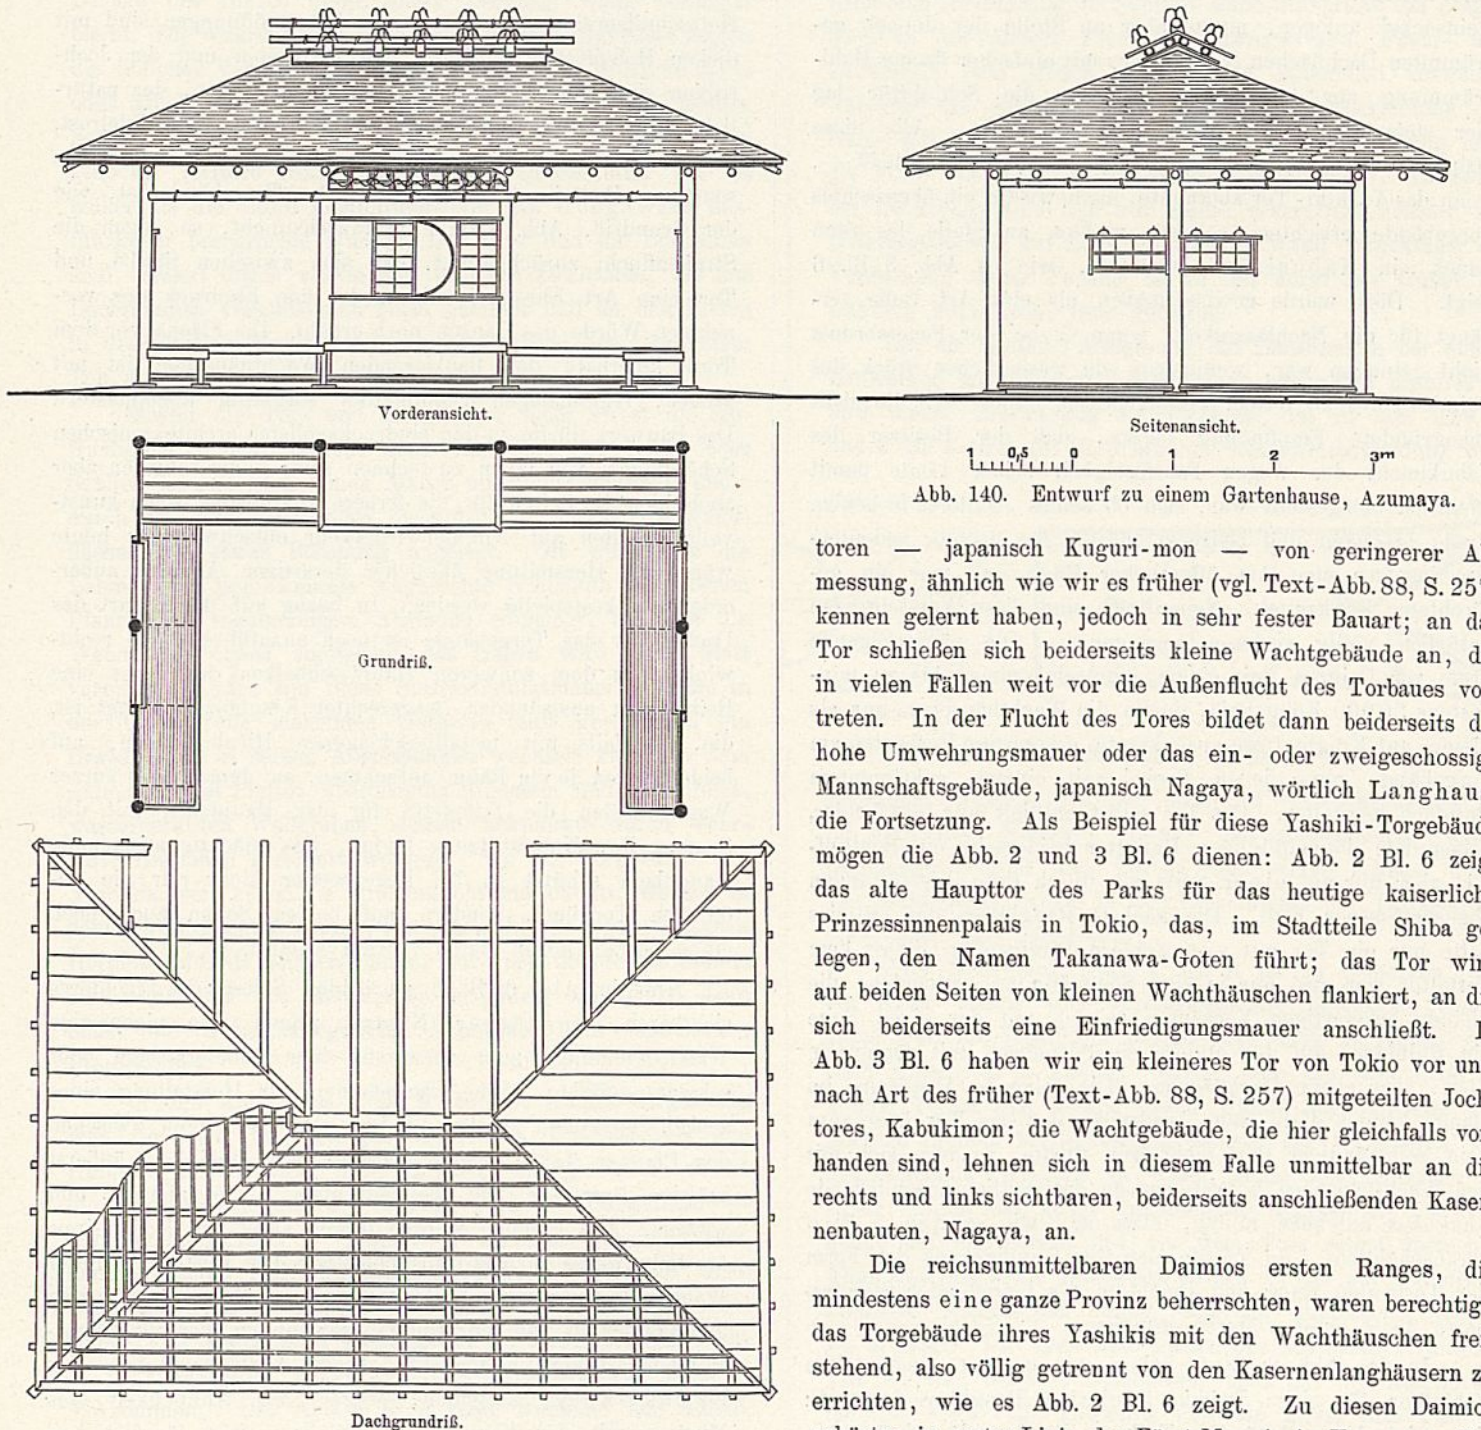 Vorderansicht.
Seitenansicht.
1 0,5 0 1 2 3m
Abb. 140. Entwurf zu einem Gartenhause, Azumaya.
Grundriß.
Dachgrundriß.
toren — japanisch Kuguri-mon — von geringerer
messung, ähnlich wie wir es früher (vgl. Text-Abb. 88, S. 25
kennen gelernt haben, jedoch in sehr fester Bauart; an
Tor schließen sich beiderseits kleine Wachtgebäude an,
in vielen Fällen weit vor die Außenflucht des Torbaues
treten. In der Flucht des Tores bildet dann beiderseits
hohe Umwehrungsmauer oder das ein- oder zweigeschossig
Mannschaftsgebäude, japanisch Nagaya, wörtlich Langhau
die Fortsetzung. Als Beispiel für diese Yashiki-Torgebäud
mögen die Abb. 2 und 3 Bl. 6 dienen: Abb. 2 Bl. 6 zeig
das alte Haupttor des Parks für das heutige kaiserlich
Prinzessinnenpalais in Tokio, das, im Stadtteile Shiba ge
legen, den Namen Takanawa-Goten führt; das Tor wir
auf beiden Seiten von kleinen Wachthäuschen flankiert, an di
sich beiderseits eine Einfriedigungsmauer anschließt.
Abb. 3 Bl. 6 haben wir ein kleineres Tor von Tokio vor un
nach Art des früher (Text-Abb. 88, S. 257) mitgeteilten Joch
tores, Kabukimon; die Wachtgebäude, die hier gleichfalls vor
handen sind, lehnen sich in diesem Falle unmittelbar an di
rechts und links sichtbaren, beiderseits anschließenden Kaser
nenbauten, Nagaya, an.
Die reichsunmittelbaren Daimios ersten Ranges, di
mindestens eine ganze Provinz beherrschten, waren berechtig
das Torgebäude ihres Yashikis mit den Wachthäuschen frei
stehend, also völlig getrennt von den Kasernenlanghäusern z
errichten, wie es Abb. 2 Bl. 6 zeigt. Zu diesen Daimio